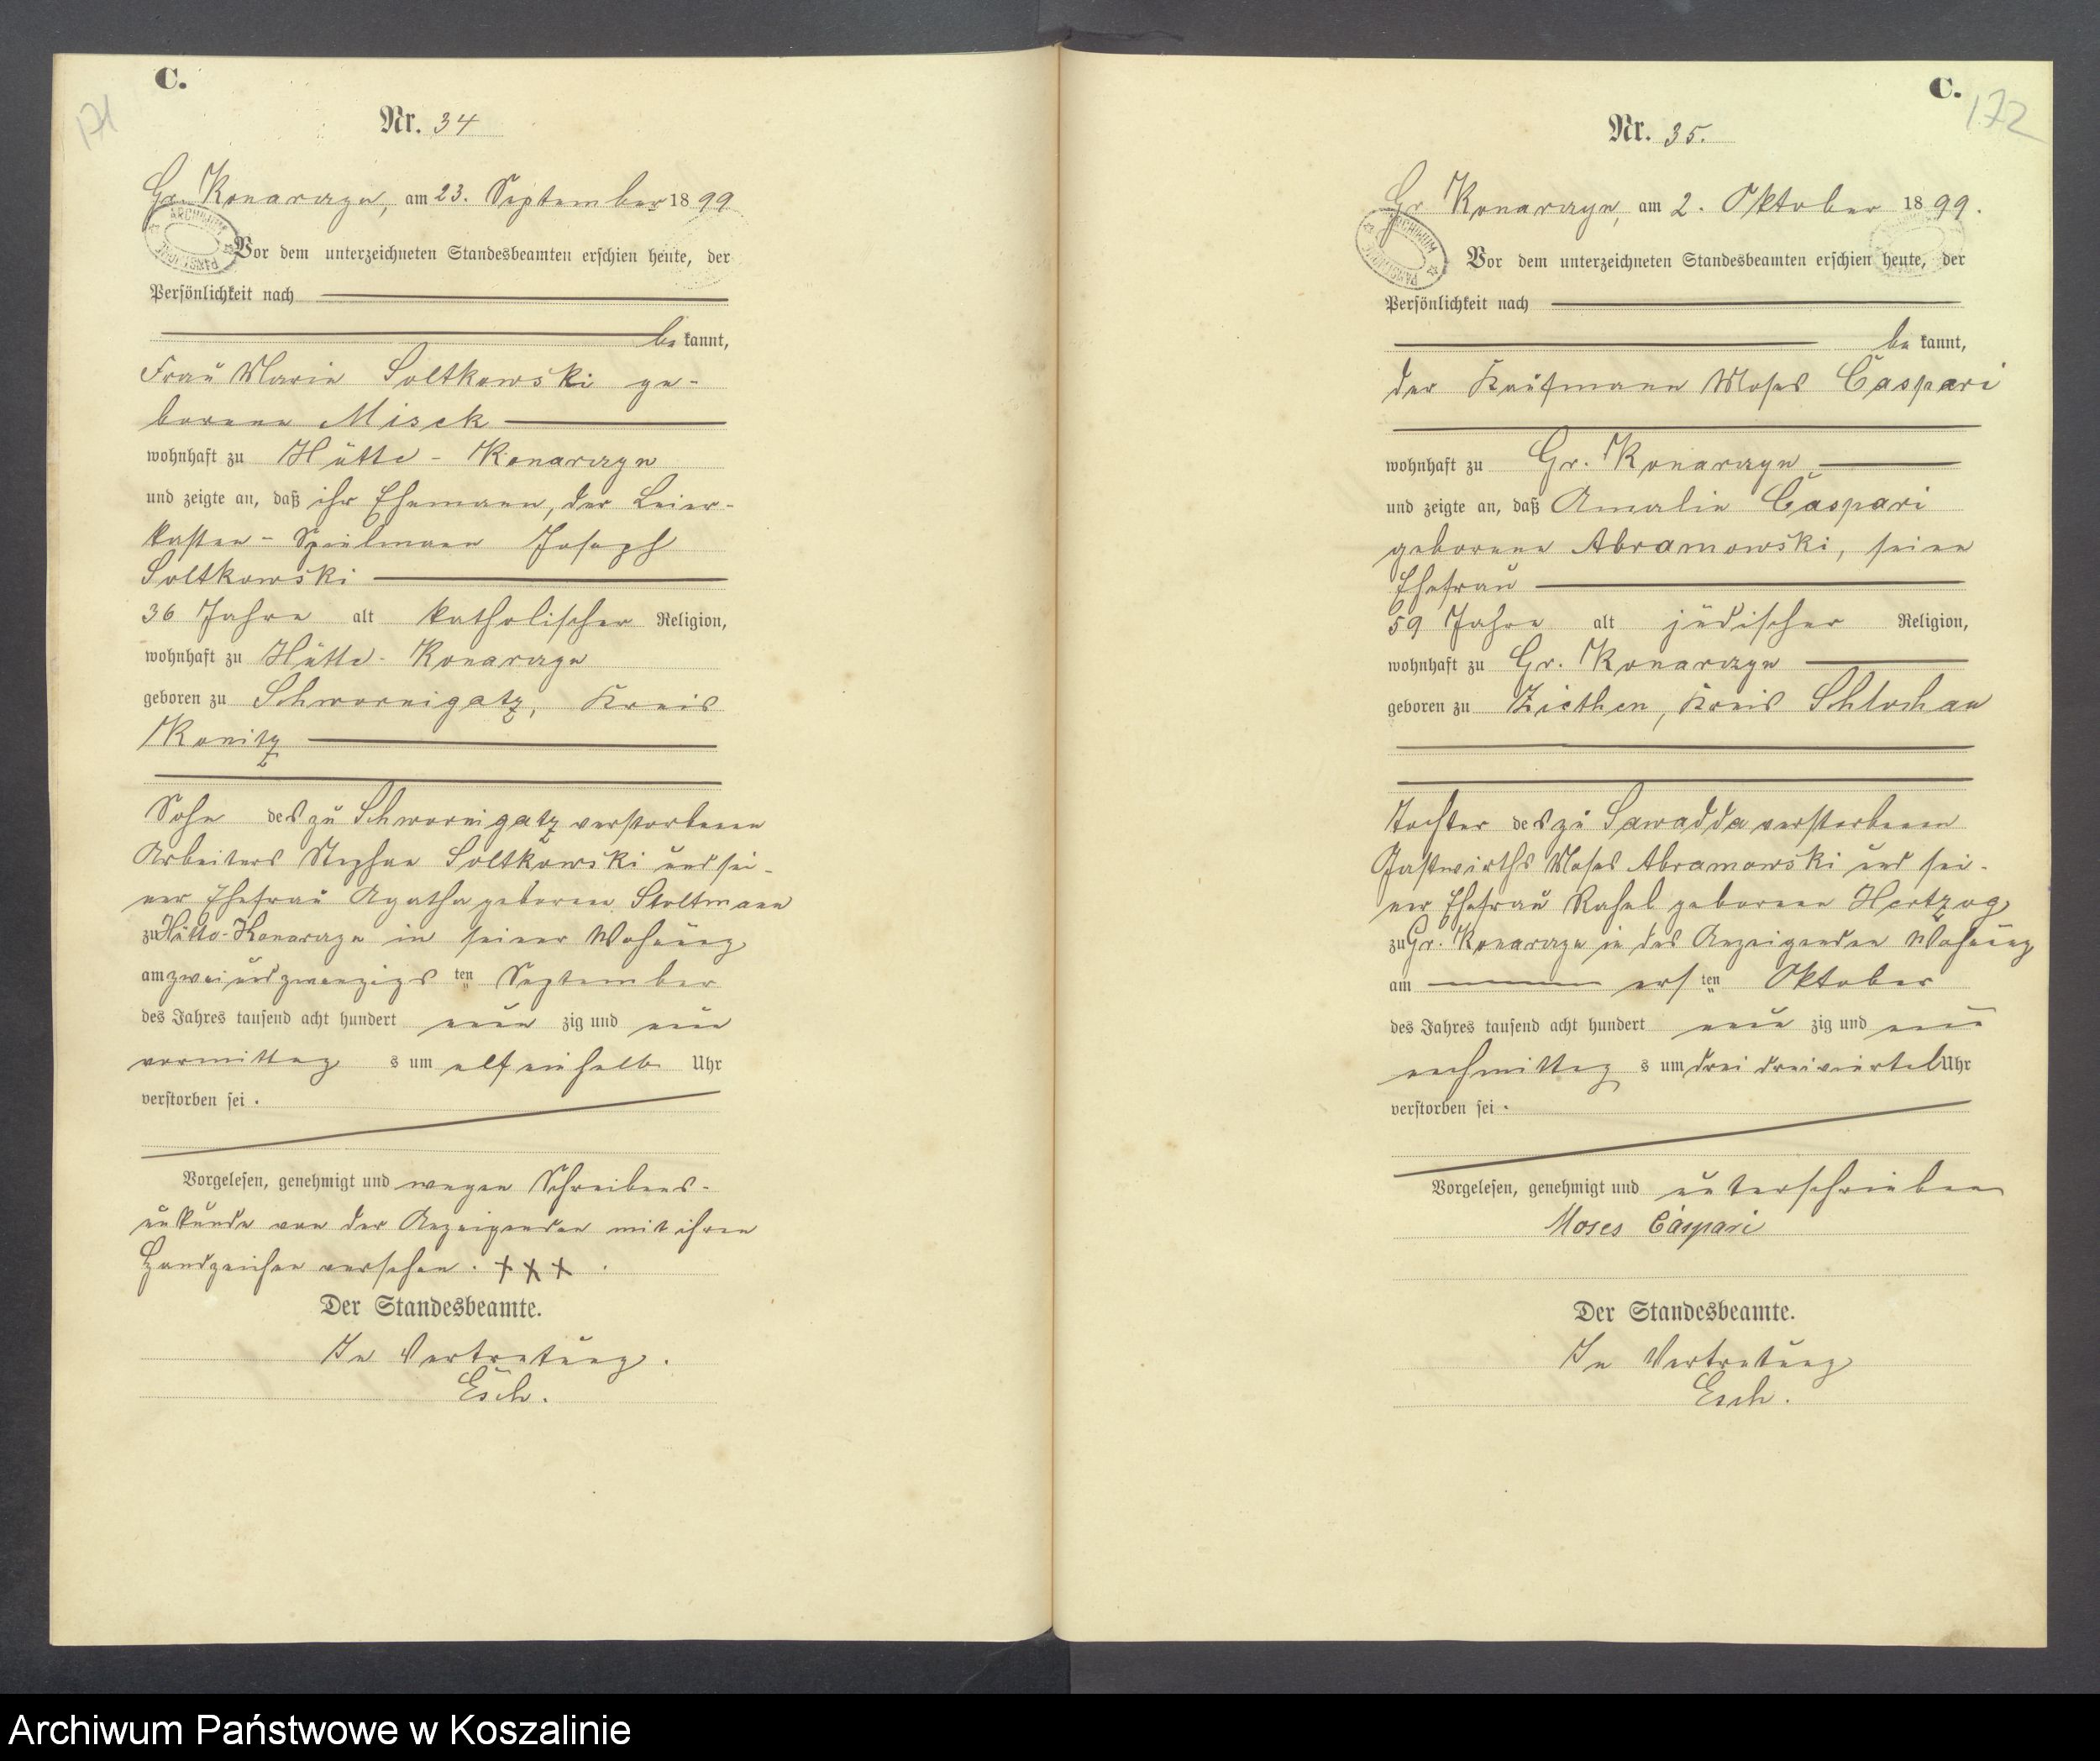 C.
171
Nr. 34
Gr. Konarczyn, am 23. September 1899
ARCHIWUM
PAŃSTWOWE
Vor dem unterzeichneten Standesbeamten erschien heute, der
Persönlichkeit nach
be kannt,
Frau Marie Soltkowski ge-
borene Misck
wohnhaft zu Hütte-Konarczyn
und zeigte an, daß ihr Ehemann, der Leier-
kasten-Spielmann Joseph
Soltkowski
36 Jahre alt katholischer Religion,
wohnhaft zu Hütte-Konarczyn
geboren zu Schwornigatz, Kreis
Konitz
Sohn des zu Schwornigatz verstorbenen
Arbeiters Stephan Soltkowski und sei-
ner Ehefrau Agatha geborene Stoltmann
zu Hütte-Konarczyn in seiner Wohnung
am zweiundzwanzigs ten September
des Jahres tausend acht hundert neun zig und neun
vormittag s um elfeinhalb Uhr
verstorben sei.
Vorgelesen, genehmigt und wegen Schreibens-
unkunde von der Anzeigenden mit ihren
Handzeichen versehen. +++.
Der Standesbeamte.
In Vertretung.
Esch.
C.
172
Nr. 35.
Gr Konarczyn, am 2. Oktober 1899.
ARCHIWUM
PAŃSTWOWE
Vor dem unterzeichneten Standesbeamten erschien heute, der
Persönlichkeit nach
be kannt,
der Kaufmann Moses Caspari
wohnhaft zu Gr. Konarczyn
und zeigte an, daß Amalie Caspari
geborene Abramowski, seine
Ehefrau
59 Jahre alt jüdischer Religion,
wohnhaft zu Gr. Konarczyn
geboren zu Ziethen, Kreis Schlochau
Tochter des zu Sawadda verstorbenen
Gastwirths Moses Abramowski und sei-
ner Ehefrau Rahel geborene Hertzog
zu Gr. Konarczyn in des Anzeigenden Wohnung
am ersten Oktober
des Jahres tausend acht hundert neun zig und neun
nachmittag s um drei dreiviertel Uhr
verstorben sei.
Vorgelesen, genehmigt und unterschrieben
Moses Caspari
Der Standesbeamte.
In Vertretung
Esch.
Archiwum Państwowe w Koszalinie